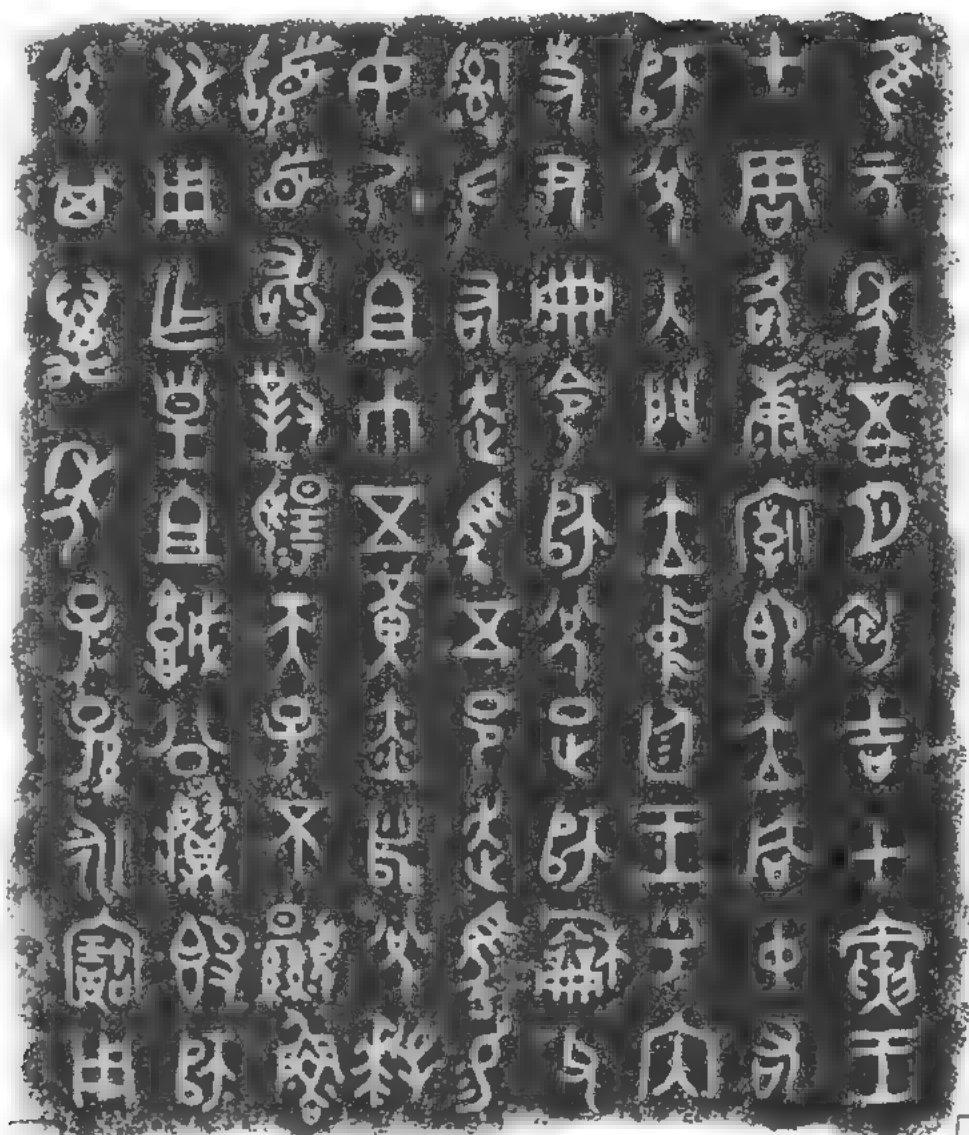 隹元年五月初吉甲寅王
才周各康廟即立同中右
師兌入門立中廷王乎內
史尹冊令師兌疋師龢父
𤔲左右走馬五邑走馬易
女乃且巾五黃赤舄兌拜
𩒨首敢對揚天子不顯魯
休用乍皇且城公𩰬簋師
兌其萬年子子孫孫永寶用